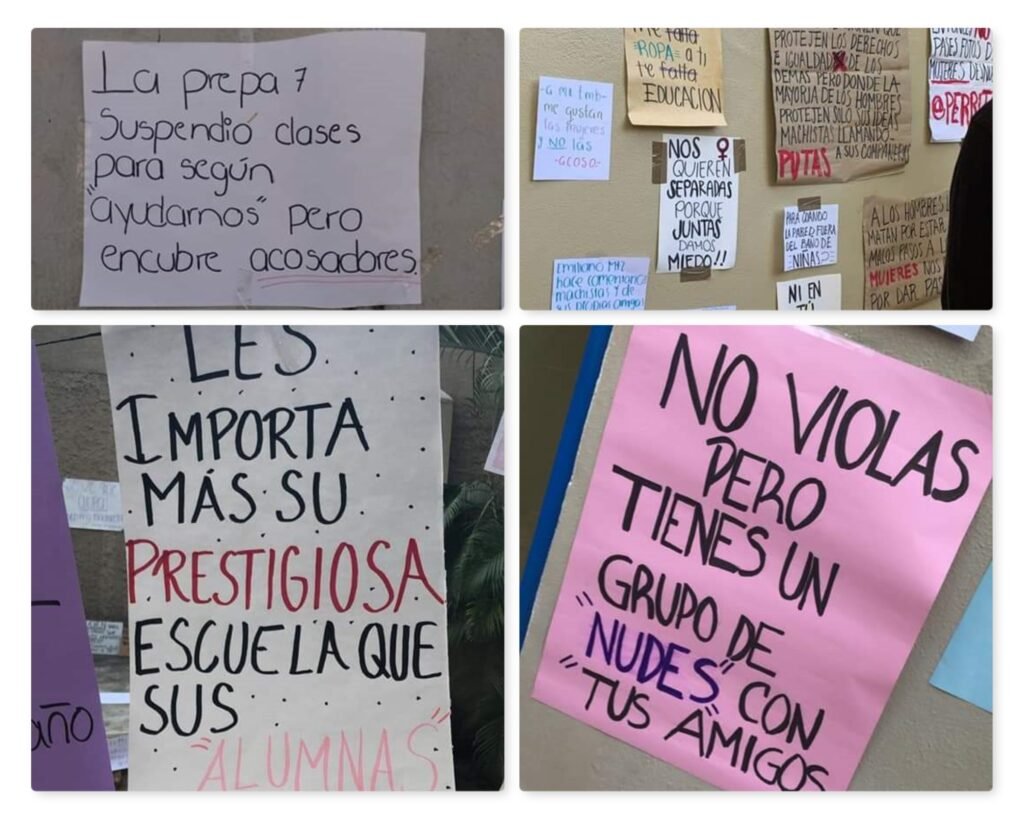 La prepa 7
Suspendió clases
para según
"ayudarnos" pero
encubre acosadores.
me falta
ROPA a ti
te falta
EDUCACIÓN
-a mi tmb-
me gustan
las mujeres
y NO las
-acoso-
NOS
QUIEREN
SEPARADAS
PORQUE
JUNTAS
DAMOS
MIEDO!!
Emiliano Mtz
hace comentarios
machistas y de
sus propias amigas
PROTEJEN LOS DERECHOS
E IGUALDAD DE LOS
DEMÁS PERO DONDE LA
MAYORIA DE LOS HOMBRES
PROTEJEN SOLO SUS IDEAS
MACHISTAS LLAMANDO
PUTAS A SUS COMPAÑERAS
PASES FOTOS D
MUJERES
@PERRIT
PARA CUANDO
LA PARED FUERA
DEL BAÑO DE
NIÑAS
NI EN
TÚ
A LOS HOMBRES L
MATAN POR ESTAR
MALOS PASOS A L
MUJERES NOS
POR DAR
LES
IMPORTA
MÁS SU
PRESTIGIOSA
ESCUELA QUE
SUS
"ALUMNAS"
año
NO VIOLAS
PERO
TIENES UN
GRUPO DE
"NUDES" CON
"TUS AMIGOS